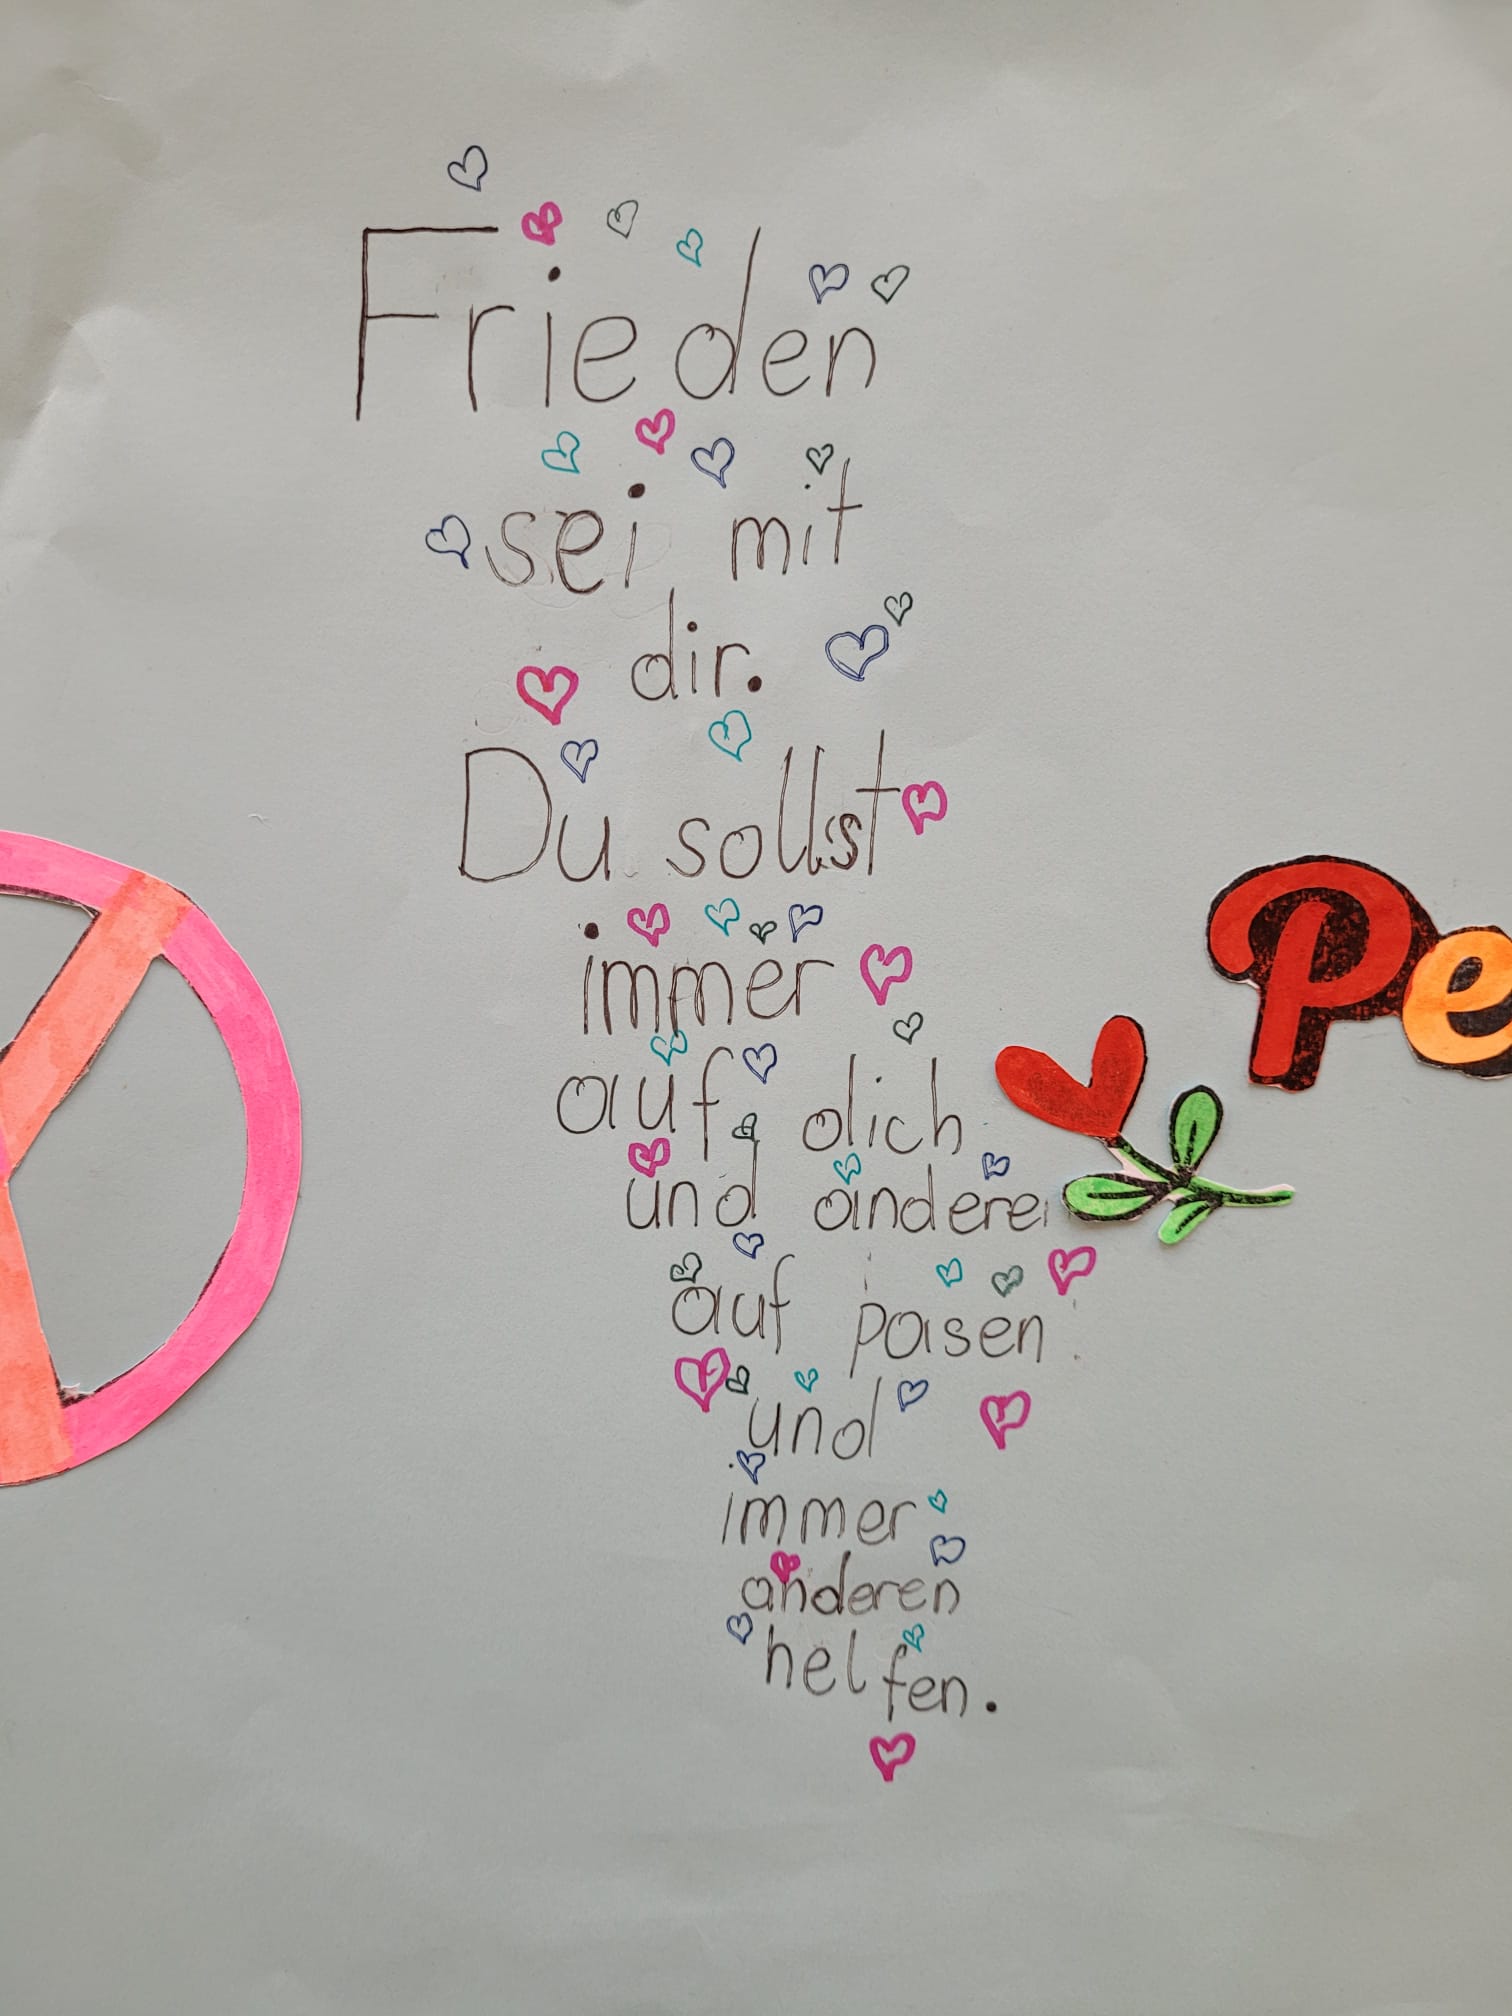 Frieden
sei mit
dir.
Du sollst
immer
auf dich
und andere
auf pasen
und
immer
anderen
helfen.
Pe